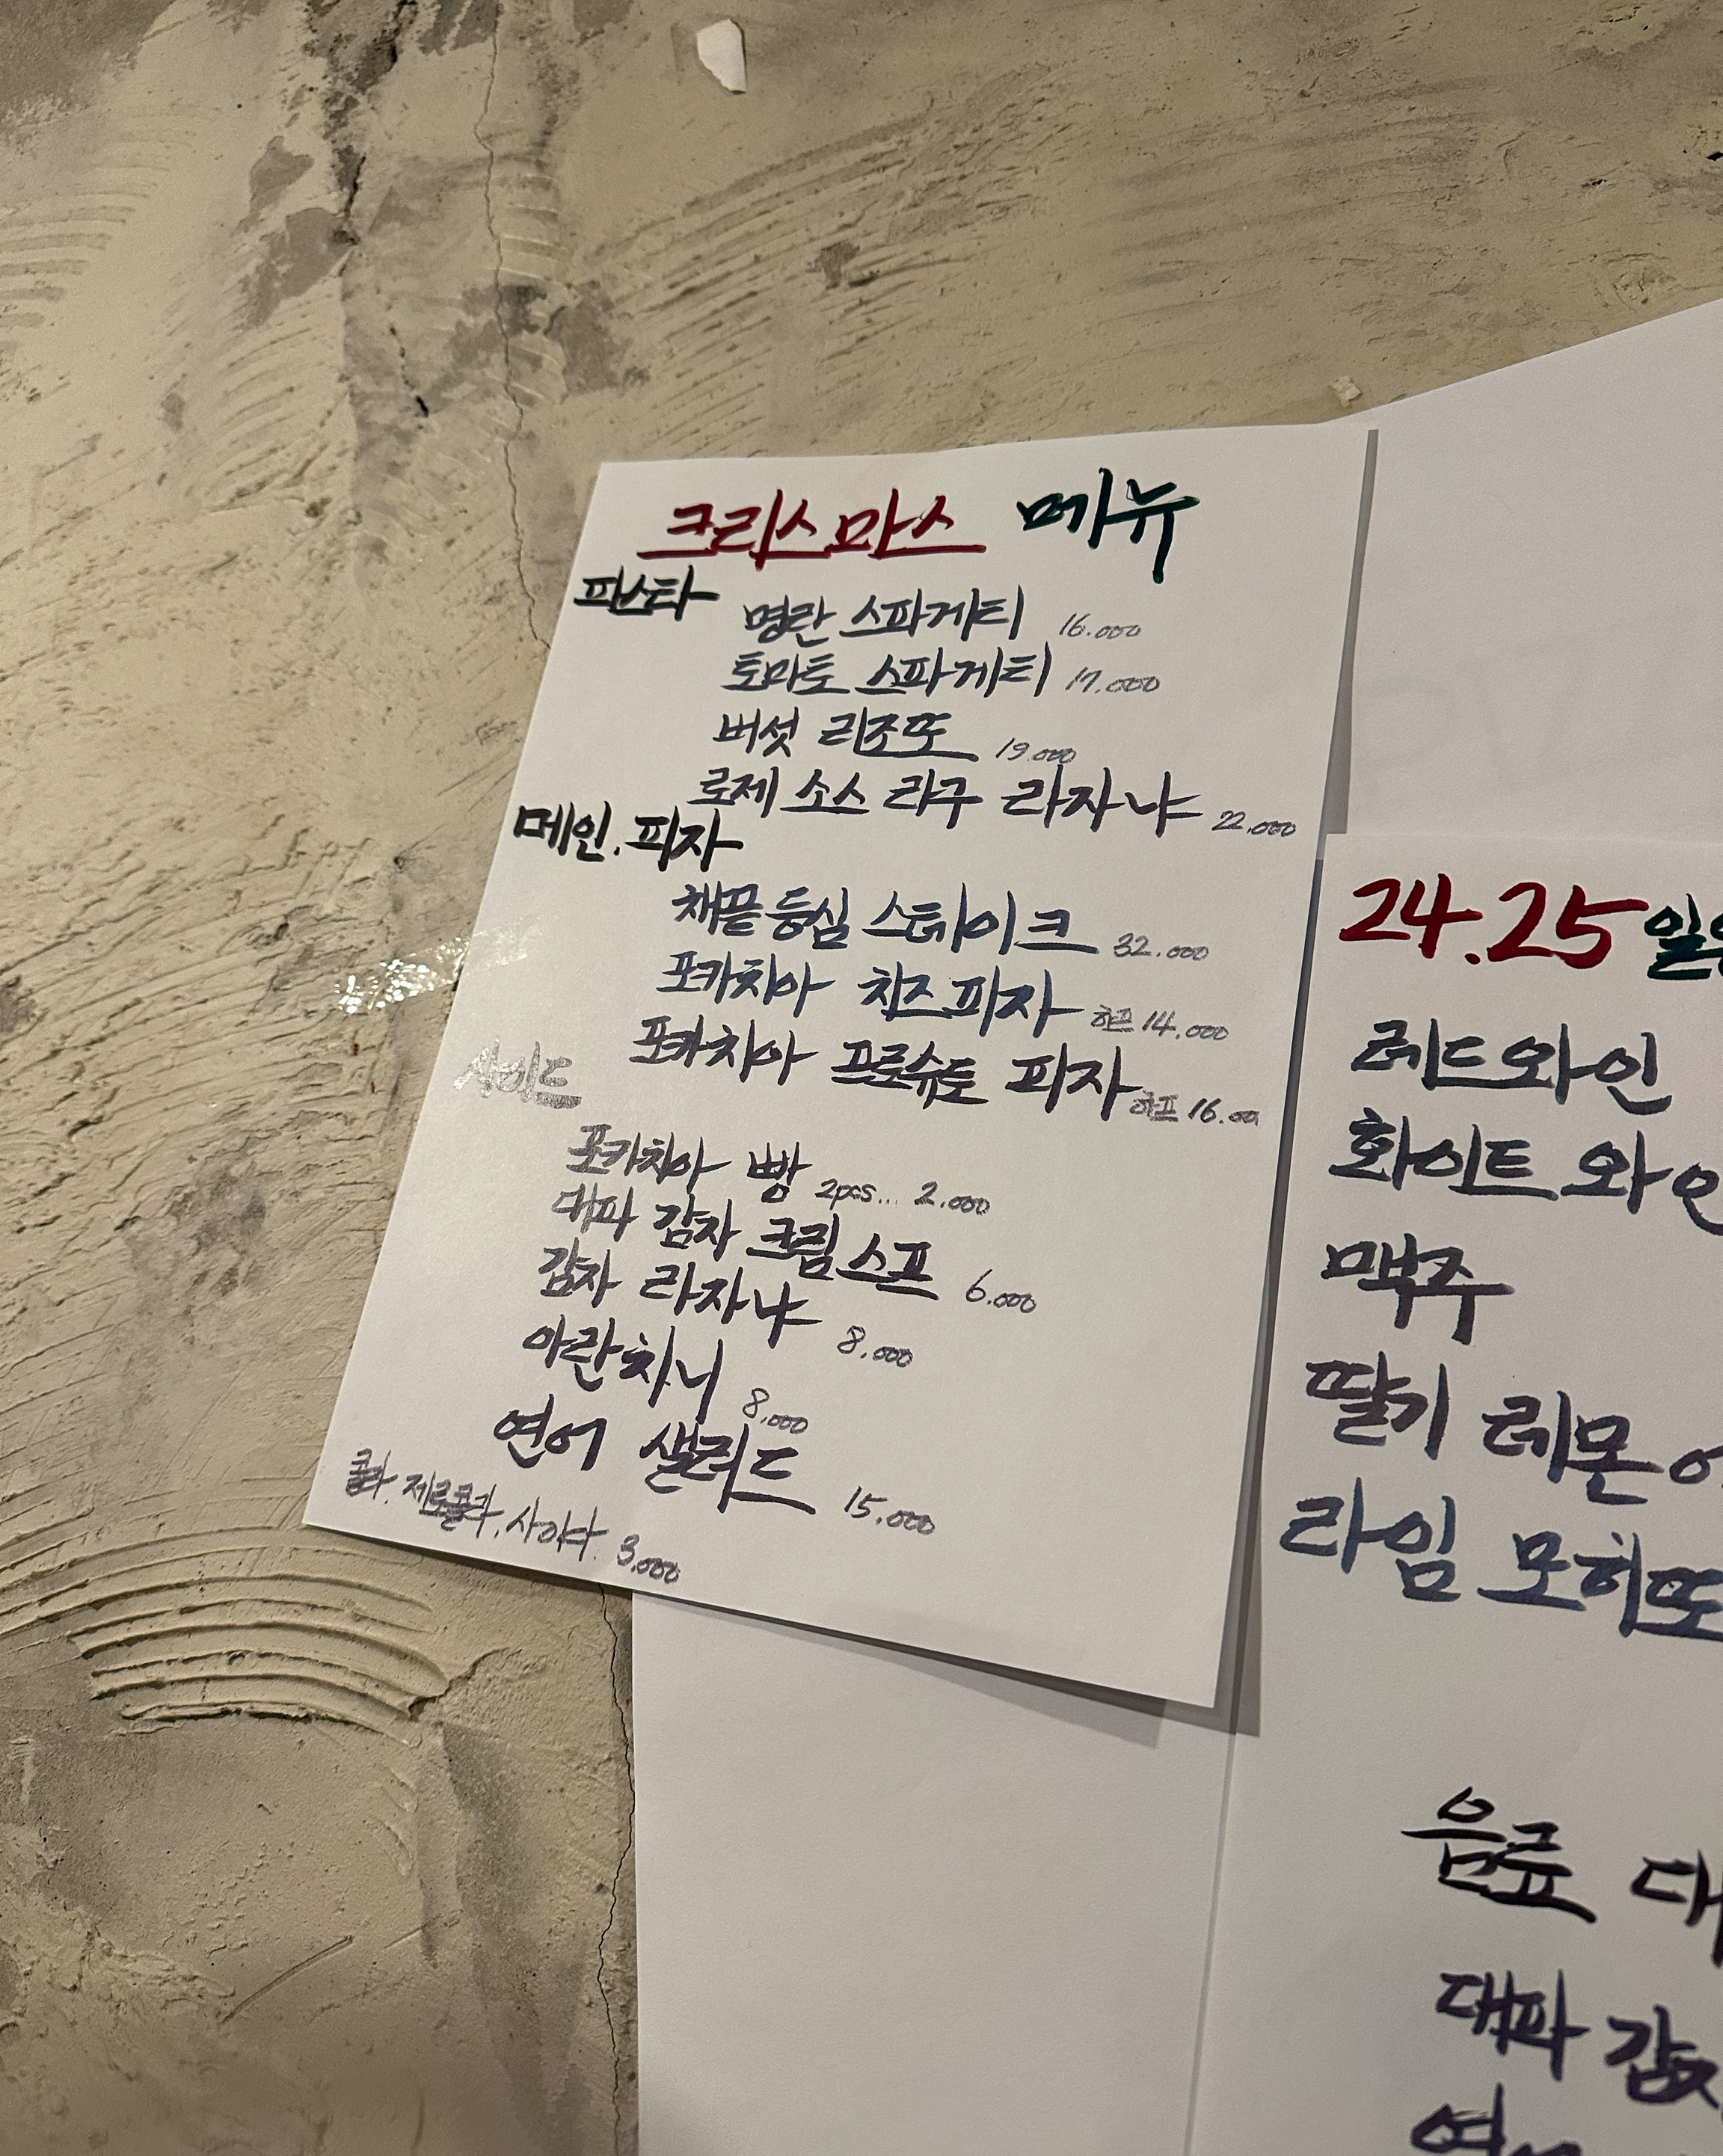 크리스마스 메뉴
파스타
명란 스파게티 16.000
토마토 스파게티 17.000
버섯 리조또 19.000
로제 소스 라구 라자냐 22.000
메인.피자
채끝등심 스테이크 32.000
포카치아 치즈피자 하프 14.000
포카치아 프로슈토 피자 하프 16.00
사이드
포카치아 빵 2pcs... 2.000
대파 감자 크림스프 6.000
감자 라자냐 8.000
아란치니 8.000
연어 샐러드 15.000
콜라. 제로콜라. 사이다. 3.000
24.25일
레드와인
화이트 와인
맥주
딸기 레몬
라임 모히또
음료
대파 감자